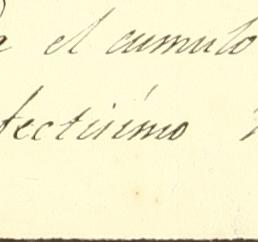 a el cumulo
fectisimo